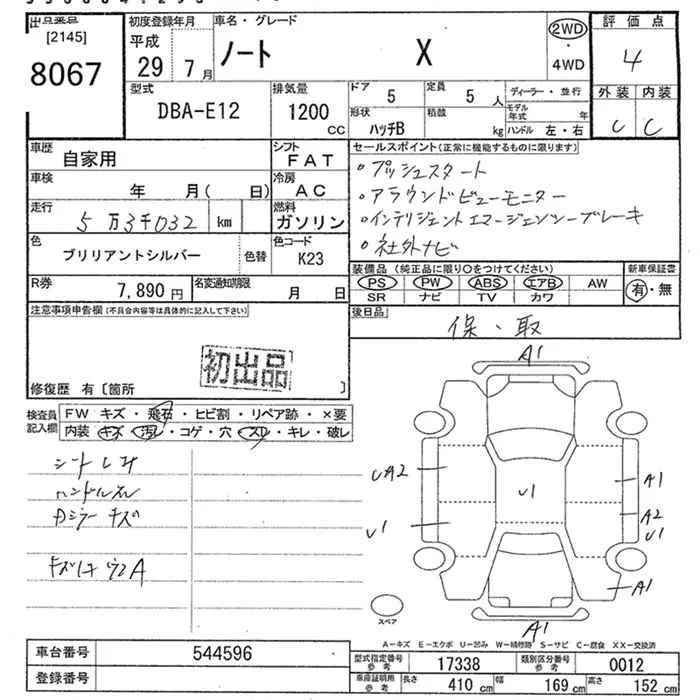 出品番号 [2145]
8067
初度登録年月
平成
29 7月
車名・グレード
ノート X
2WD・4WD
評価点
4
外装 内装
C C
型式
DBA-E12
排気量
1200 CC
ドア 5
定員 5人
形状 ハッチB
積載 kg
ディーラー・並行
モデル年式 年
ハンドル 左・右
車歴 自家用
シフト FAT
車検 年 月( 日)
冷房 AC
走行 5万3千032 km
燃料 ガソリン
色 ブリリアントシルバー 色替
色コード K23
R券 7,890円
名変通知期限 月 日
セールスポイント(正常に機能するものに限ります)
・プッシュスタート
・アラウンドビューモニター
・インテリジェントエマージェンシーブレーキ
・社外ナビ
装備品(純正品に限り○をつけてください)
PS PW ABS エアB AW
SR ナビ TV カワ
新車保証書
有・無
後日品
保・取
注意事項申告欄(不具合内容等は具体的に記入して下さい)
初出品
修復歴 有〔箇所 〕
検査員記入欄
FW キズ・飛石・ヒビ割・リペア跡・×要
内装 キズ・汚レ・コゲ・穴・スレ・キレ・破レ
シート
ハンドル
キズ
A
A1
UA2
U1
U1
A1
A2
U1
A1
A1
スペア
A-キズ E-エクボ U-凹み W-補修跡 S-サビ C-腐食 XX-交換済
車台番号 544596
登録番号
型式指定番号 参考 17338
類別区分番号 参考 0012
車庫証明用 参考 長さ 410cm 幅 169cm 高さ 152cm